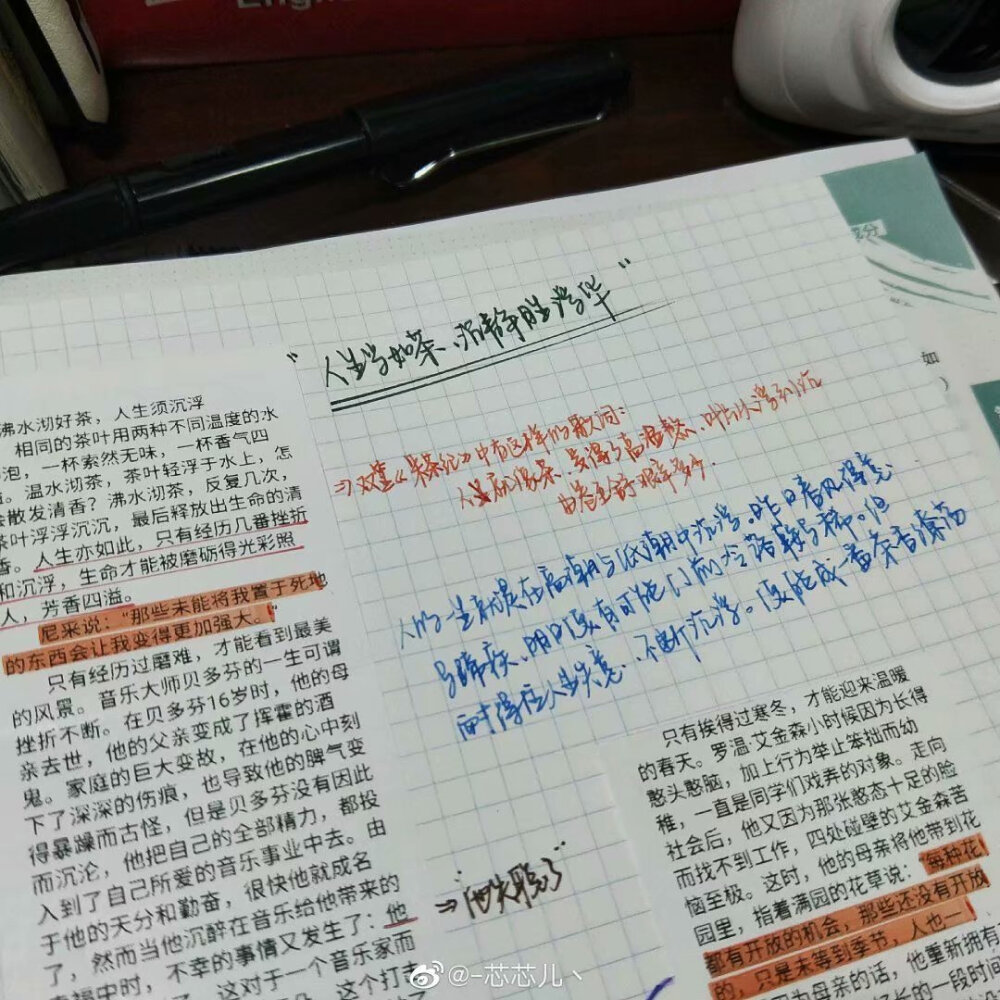 "人生当如茶、沉静胜浮华"
沸水沏好茶，人生须沉浮
相同的茶叶用两种不同温度的水
泡，一杯索然无味，一杯香气四
。温水沏茶，茶叶轻浮于水上，怎
会散发清香？沸水沏茶，反复几次，
茶叶浮浮沉沉，最后释放出生命的清
香。人生亦如此，只有经历几番挫折
和沉浮，生命才能被磨砺得光彩照
人，芳香四溢。
尼采说："那些未能将我置于死地
的东西会让我变得更加强大。"
只有经历过磨难，才能看到最美
的风景。音乐大师贝多芬的一生可谓
挫折不断。在贝多芬16岁时，他的母
亲去世，他的父亲变成了挥霍的酒
鬼。家庭的巨大变故，在他的心中刻
下了深深的伤痕，也导致他的脾气变
得暴躁而古怪，但是贝多芬没有因此
而沉沦，他把自己的全部精力，都投
入到了自己所爱的音乐事业中去。由
于他的天分和勤奋，很快他就成名
了，然而当他沉醉在音乐给他带来的
幸福中时，不幸的事情又发生了：他
了，这对于一个音乐家而
这个打击
中有这样的歌词：
人生应该像茶、
人的一生就是在高潮与低潮中沉浮。昨日春风得意
明日便有可能门前冷落鞍马稀。但
耐得住人生失意、不断沉浮。便能成一壶茶香
⇒"他失聪了"
只有挨得过寒冬，才能迎来温暖
的春天。罗温·艾金森小时候因为长得
憨头憨脑，加上行为举止笨拙而幼
稚，一直是同学们戏弄的对象。走向
社会后，他又因为那张憨态十足的脸
而找不到工作，四处碰壁的艾金森苦
恼至极。这时，他的母亲将他带到花
园里，指着满园的花草说：每种花
都有开放的机会，那些还没有开放
的，只是未等到季节，人也一
因为母亲的话，他重新拥有
长的一段时间
如
@-芯芯儿丶